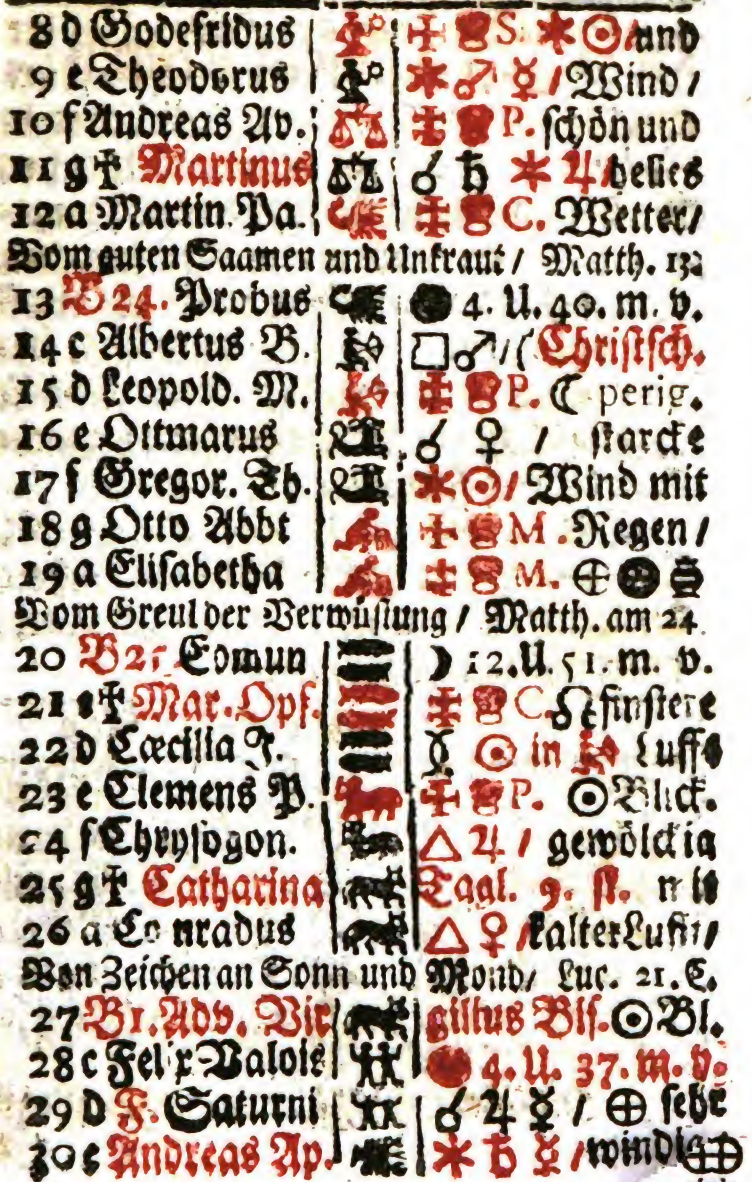 8 d Godefridus S. ⚹ ☉ / und
9 e Theodorus ⚹ ♂ ☿ / Wind /
10 f Andreas Av. P. schön und
11 g ☥ Martinus ☌ ♄ ⚹ ♃ / helles
12 a Martin. Pa. C. Wetter /
Vom guten Saamen und Unkraut / Matth. 13
13 B 24. Probus ● 4. U. 40. m. v.
14 c Albertus B. □ ♂ / ( Christsch.
15 d Leopold. M. P. ☾ perig.
16 e Ottmarus ☌ ♀ / starcke
17 f Gregor. Th. ⚹ ☉ / Wind mit
18 g Otto Abbt M. Regen /
19 a Elisabetha M. ⊕
Vom Greul der Verwüstung / Matth. am 24
20 B 25. Edmun ☽ 12. U. 51. m. v.
21 ☥ Mar. Opf. C. ☊ finstere
22 d Cæcilia J. ☉ in Lufft
23 e Clemens P. P. ☉ Blick.
24 f Chrysogon. △ ♃ / gewölckig
25 g ☥ Catharina Tagl. 9. st. mit
26 a Conradus △ ♀ / kalter Lufft /
Von Zeichen an Sonn und Mond / Luc. 21. C.
27 B 1. Adv. Vir gilius Bis. ☉ Bl.
28 c Felix Valois ● 4. U. 37. m. v.
29 d F. Saturni ☌ ♃ ☿ / ⊕ sehr
30 e Andreas Ap. ⚹ ♄ ☿ / windig ⊕